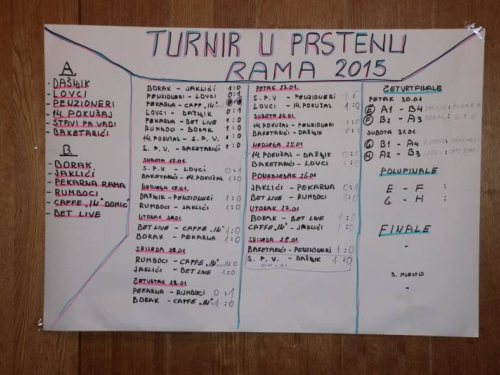 TURNIR U PRSTENU
RAMA 2015
A
- DAŠNIK
- LOVCI
- PENZIONERI
- 14. POKUŠAJ
- STAVI PA VADI
- BAKETARIĆI
B
- BORAK
- JAKLIĆI
- PEKARNA RAMA
- RUMBOCI
- CAFFE „IN“ DOMIĆ
- BET LIVE
BORAK - JAKLIĆI 1:0
PENZIONERI - LOVCI 0:1
PEKARNA - CAFF „IN“
LOVCI - DAŠNIK 0:1
PEKARNA - BET LIVE 1:0
RUMBOCI - BORAK 1:0
14. POKUŠAJ - S. P. V. 1:0
S. P. V. - BAKETARIĆI 1:0
SUBOTA
S. P. V. - LOVCI 0:1
BAKETARIĆI - 14. POKUŠAJ 1:0
NEDJELJA
DAŠNIK - PENZIONERI 1:0
RUMBOCI - JAKLIĆI 1:0
UTORAK
BET LIVE - CAFFE „IN“ 0:1
BORAK - PEKARNA 1:0
SRIJEDA
RUMBOCI - CAFFE „IN“ 1:0
JAKLIĆI - BET LIVE 1:0
ČETVRTAK
PEKARNA - RUMBOCI 0:1
BORAK - CAFFE „IN“ 1:0
PETAK
S. P. V - PENZIONERI
LOVCI - 14. POKUŠAJ
SUBOTA 24.01.
14. POKUŠAJ - PENZIONERI
BAKETARIĆI - DAŠNIK
NEDJELJA 25.01
14. POKUŠAJ - DAŠNIK 0:1
BAKETARIĆI - LOVCI 1:0
PONEDJELJAK 26.01
JAKLIĆI - PEKARNA 0:1
BET LIVE - RUMBOCI 1:0
UTORAK 27.01
BORAK - BET LIVE 1:0
CAFFE „IN“ - JAKLIĆI 1:0
SRIJEDA 28.01
BAKETARIĆI - PENZIONERI 1:0
S. P. V. - DAŠNIK 1:0
ČETVRTFINALE
PETAK 30.01
E A1 - B4
F B2 - A3
SUBOTA 31.01
G B1 - A4
H A2 - B3
POLUFINALE
E - F :
G - H :
FINALE
-
3. MJESTO
-